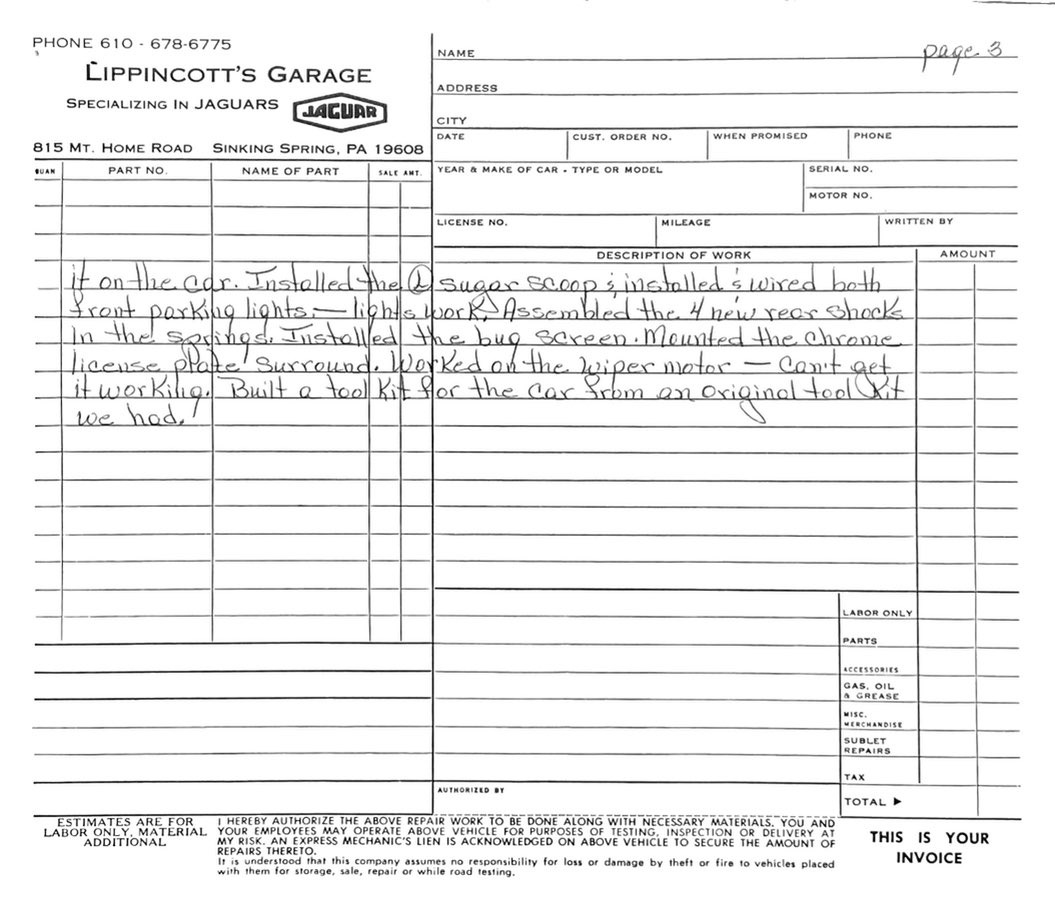 PHONE 610 - 678-6775
LIPPINCOTT'S GARAGE
SPECIALIZING IN JAGUARS
JAGUAR
815 MT. HOME ROAD SINKING SPRING, PA 19608
NAME
page 3
ADDRESS
CITY
DATE CUST. ORDER NO. WHEN PROMISED PHONE
QUAN PART NO. NAME OF PART SALE AMT.
YEAR & MAKE OF CAR - TYPE OR MODEL SERIAL NO.
MOTOR NO.
LICENSE NO. MILEAGE WRITTEN BY
DESCRIPTION OF WORK AMOUNT
it on the car. Installed the sugar scoop & installed & wired both
front parking lights. — lights work. Assembled the 4 new rear shocks
in the springs. Installed the bug screen. Mounted the chrome
license plate surround. Worked on the wiper motor — Can't get
it working. Built a tool kit for the car from an original tool kit
we had.
LABOR ONLY
PARTS
ACCESSORIES
GAS, OIL
& GREASE
MISC.
MERCHANDISE
SUBLET
REPAIRS
TAX
AUTHORIZED BY
TOTAL ►
ESTIMATES ARE FOR
LABOR ONLY, MATERIAL
ADDITIONAL
I HEREBY AUTHORIZE THE ABOVE REPAIR WORK TO BE DONE ALONG WITH NECESSARY MATERIALS. YOU AND
YOUR EMPLOYEES MAY OPERATE ABOVE VEHICLE FOR PURPOSES OF TESTING, INSPECTION OR DELIVERY AT
MY RISK. AN EXPRESS MECHANIC'S LIEN IS ACKNOWLEDGED ON ABOVE VEHICLE TO SECURE THE AMOUNT OF
REPAIRS THERETO.
It is understood that this company assumes no responsibility for loss or damage by theft or fire to vehicles placed
with them for storage, sale, repair or while road testing.
THIS IS YOUR
INVOICE